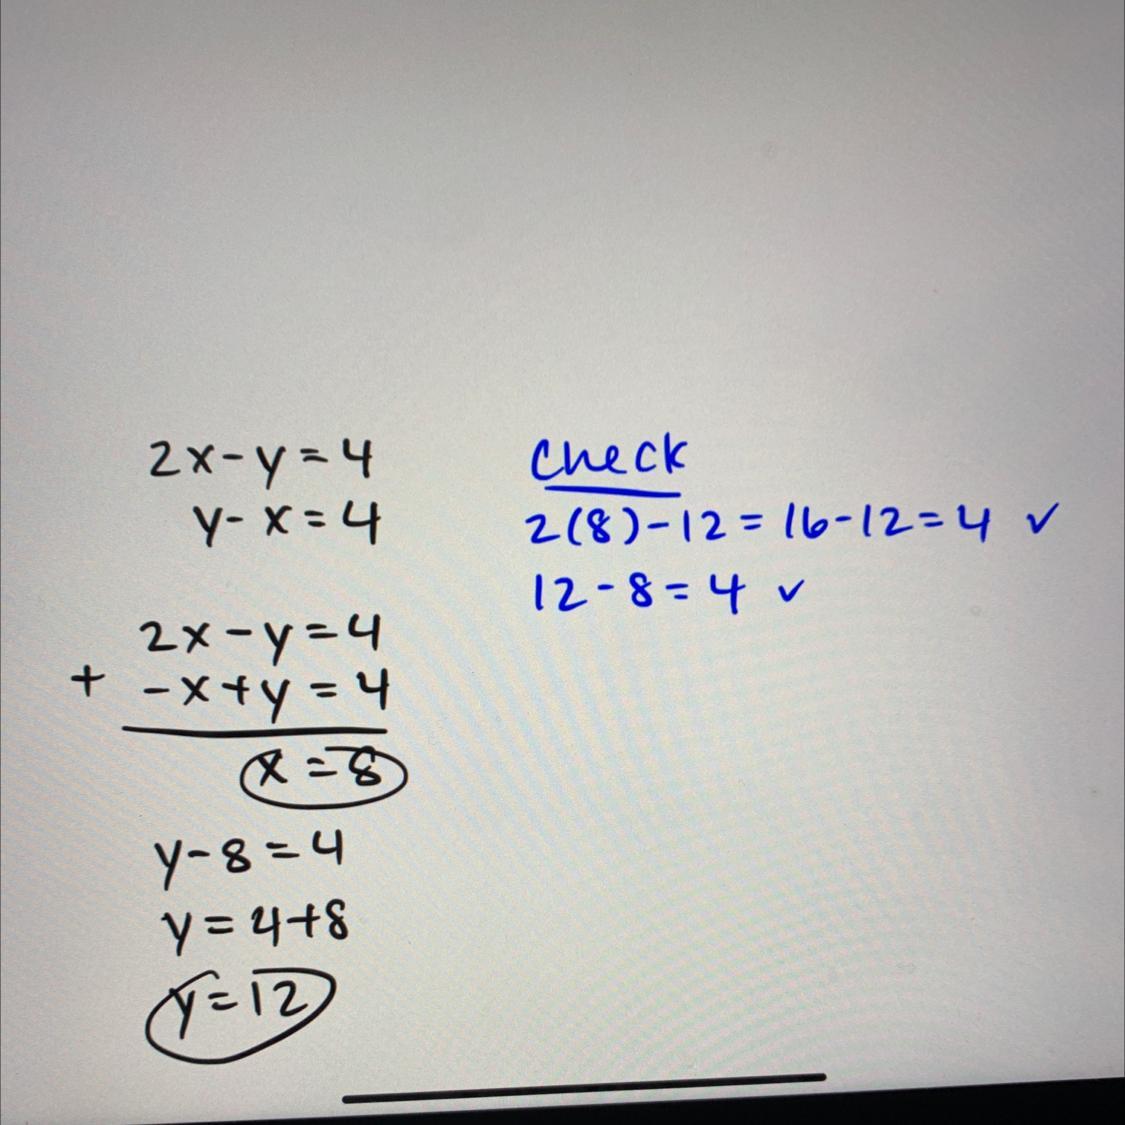 2x-y=4
y-x=4
2x-y=4
+ -x+y=4
x=8
y-8=4
y=4+8
y=12
check
2(8)-12=16-12=4 ✓
12-8=4 ✓